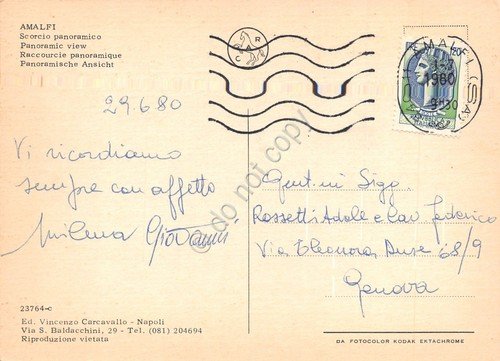 AMALFI
Scorcio panoramico
Panoramic view
Raccourcie panoramique
Panoramische Ansicht
C A R
AMALFI (SA)
1980
29.6.80
Vi ricordiamo
sempre con affetto
Milena Giovanni
Gent.mi Sigg.
Rossetti Adele e Cav. Federico
Via Eleonora Duse 68/9
Genova
do not copy
23764-c
Ed. Vincenzo Carcavallo - Napoli
Via S. Baldacchini, 29 - Tel. (081) 204694
Riproduzione vietata
DA FOTOCOLOR KODAK EKTACHROME